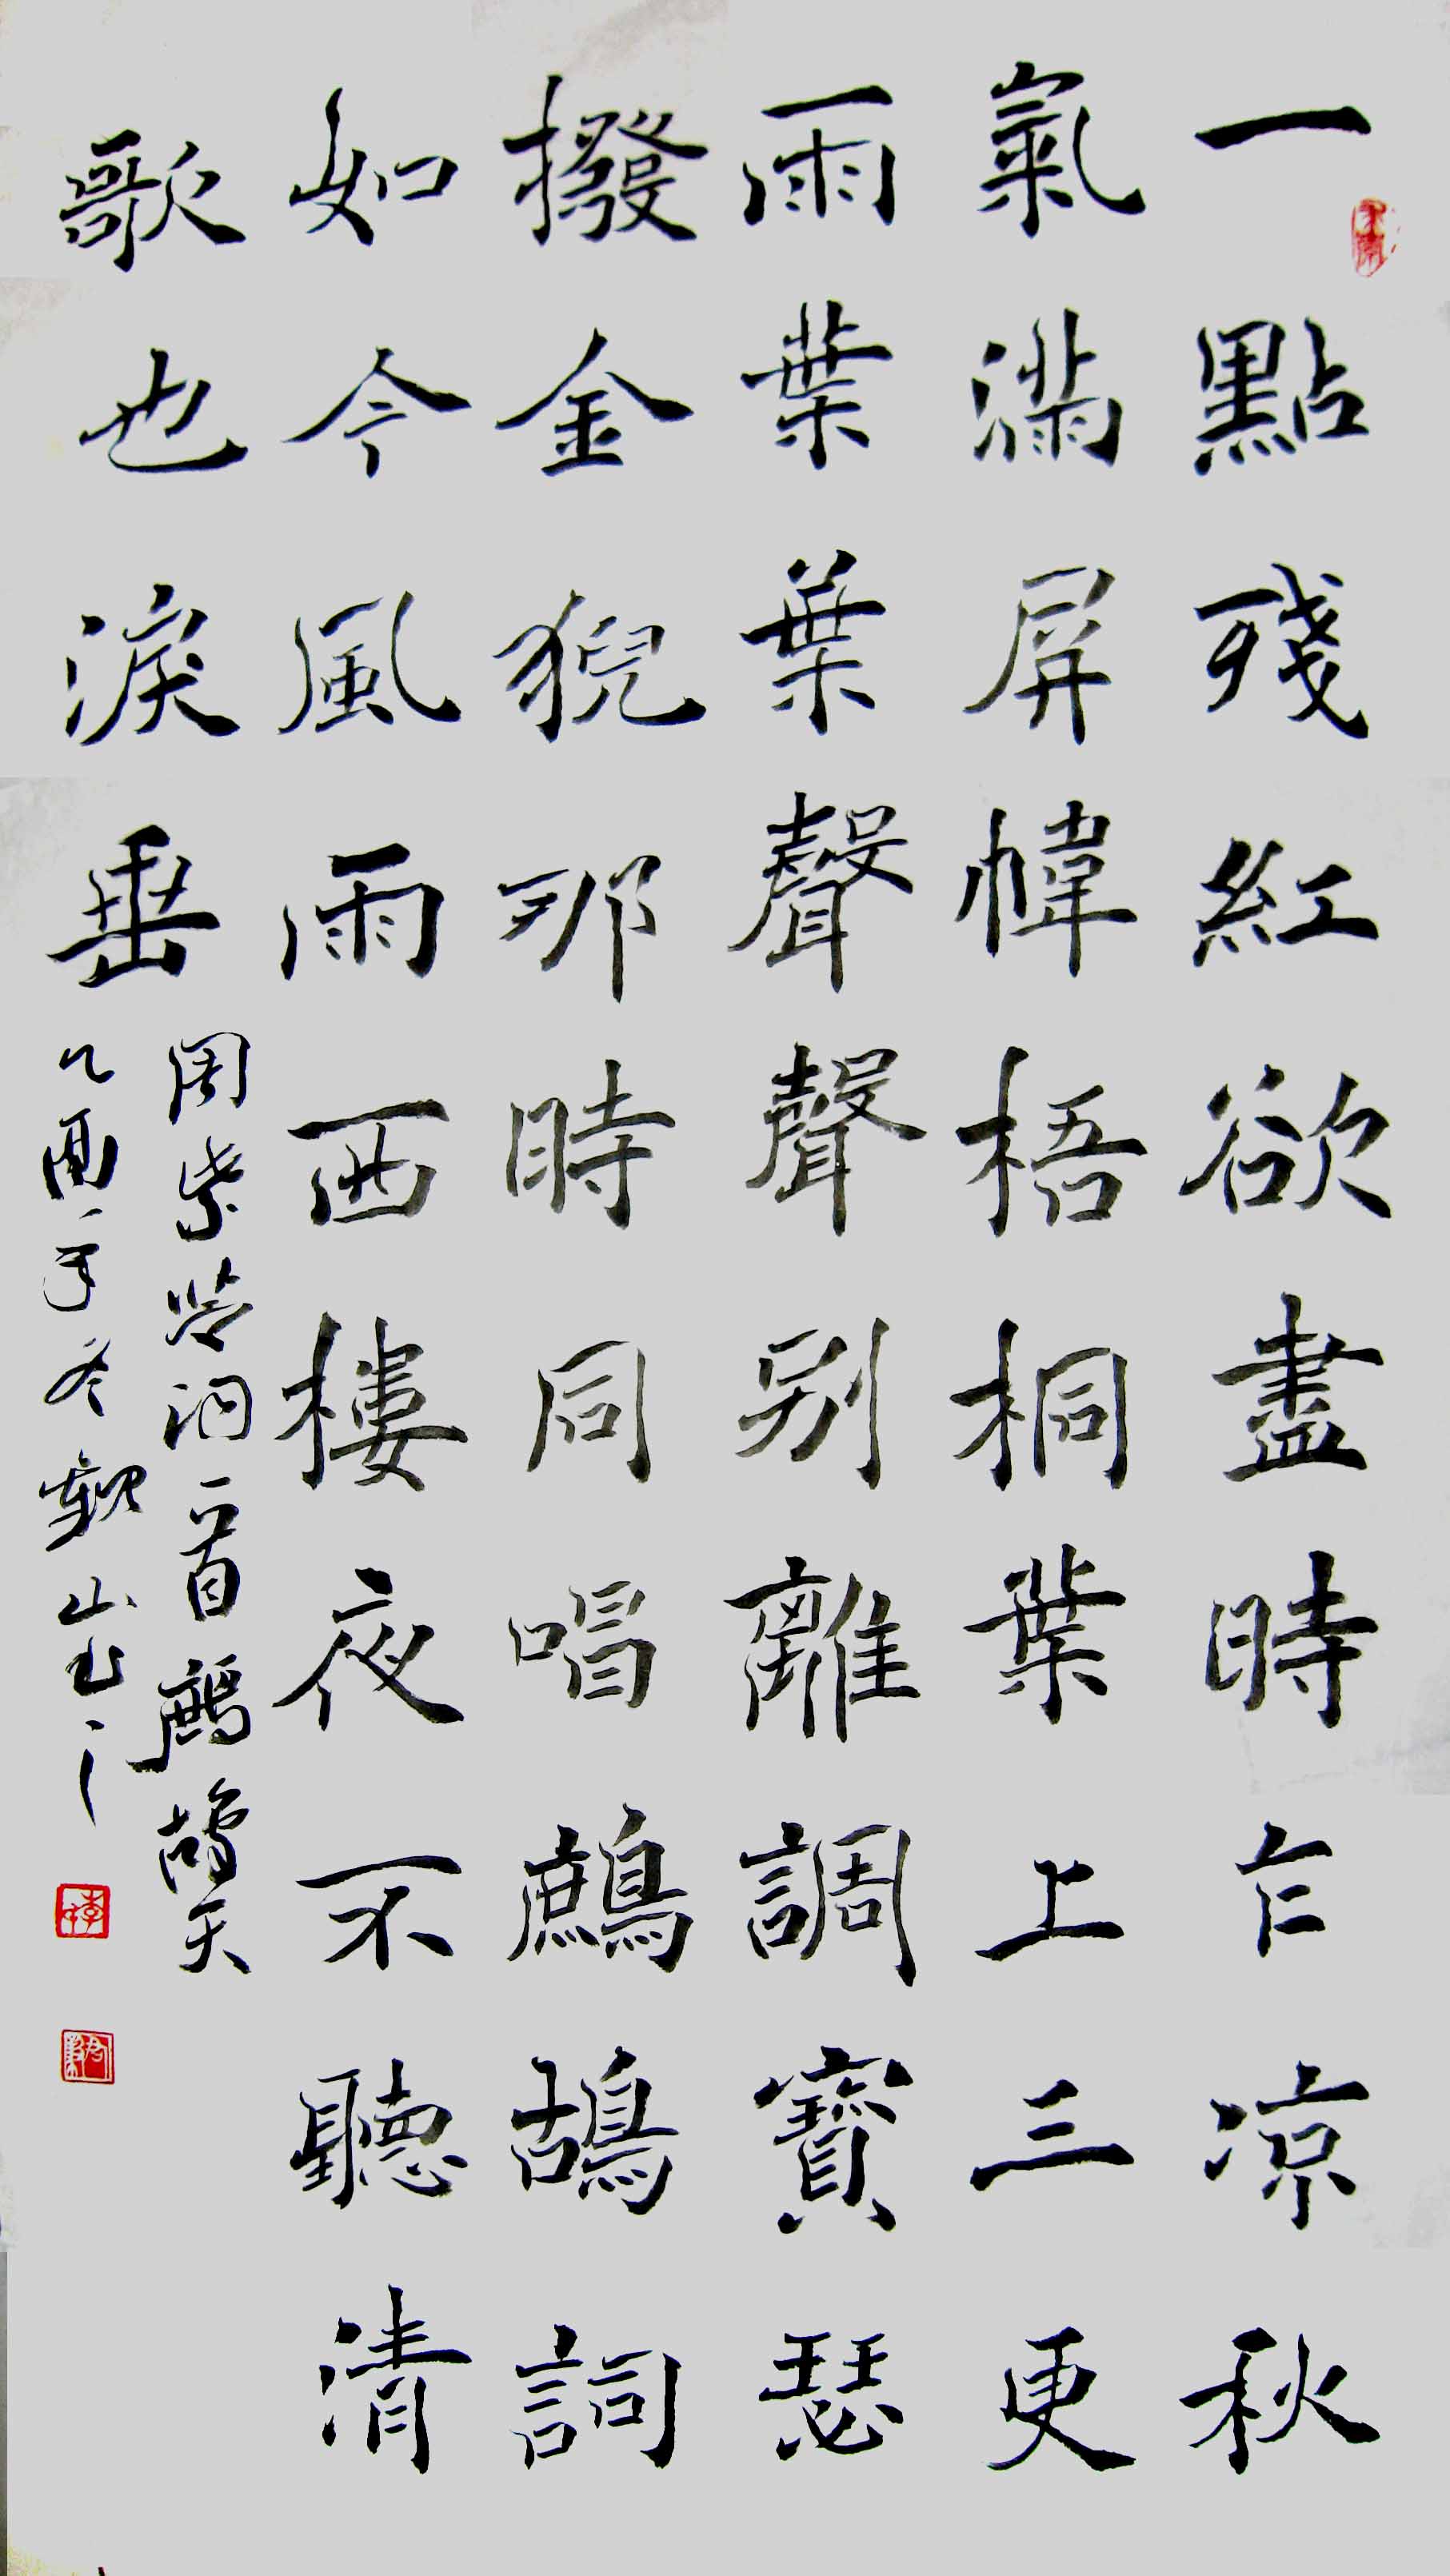 一點殘紅欲盡時乍凉秋
氣滿屏幃梧桐葉上三更
雨葉葉聲聲別離調寶瑟
撥金猊那時同唱鷓鴣詞
如今風雨西樓夜不聽清
歌也淚垂
周紫芝词一首鷓鴣天
乙酉年冬